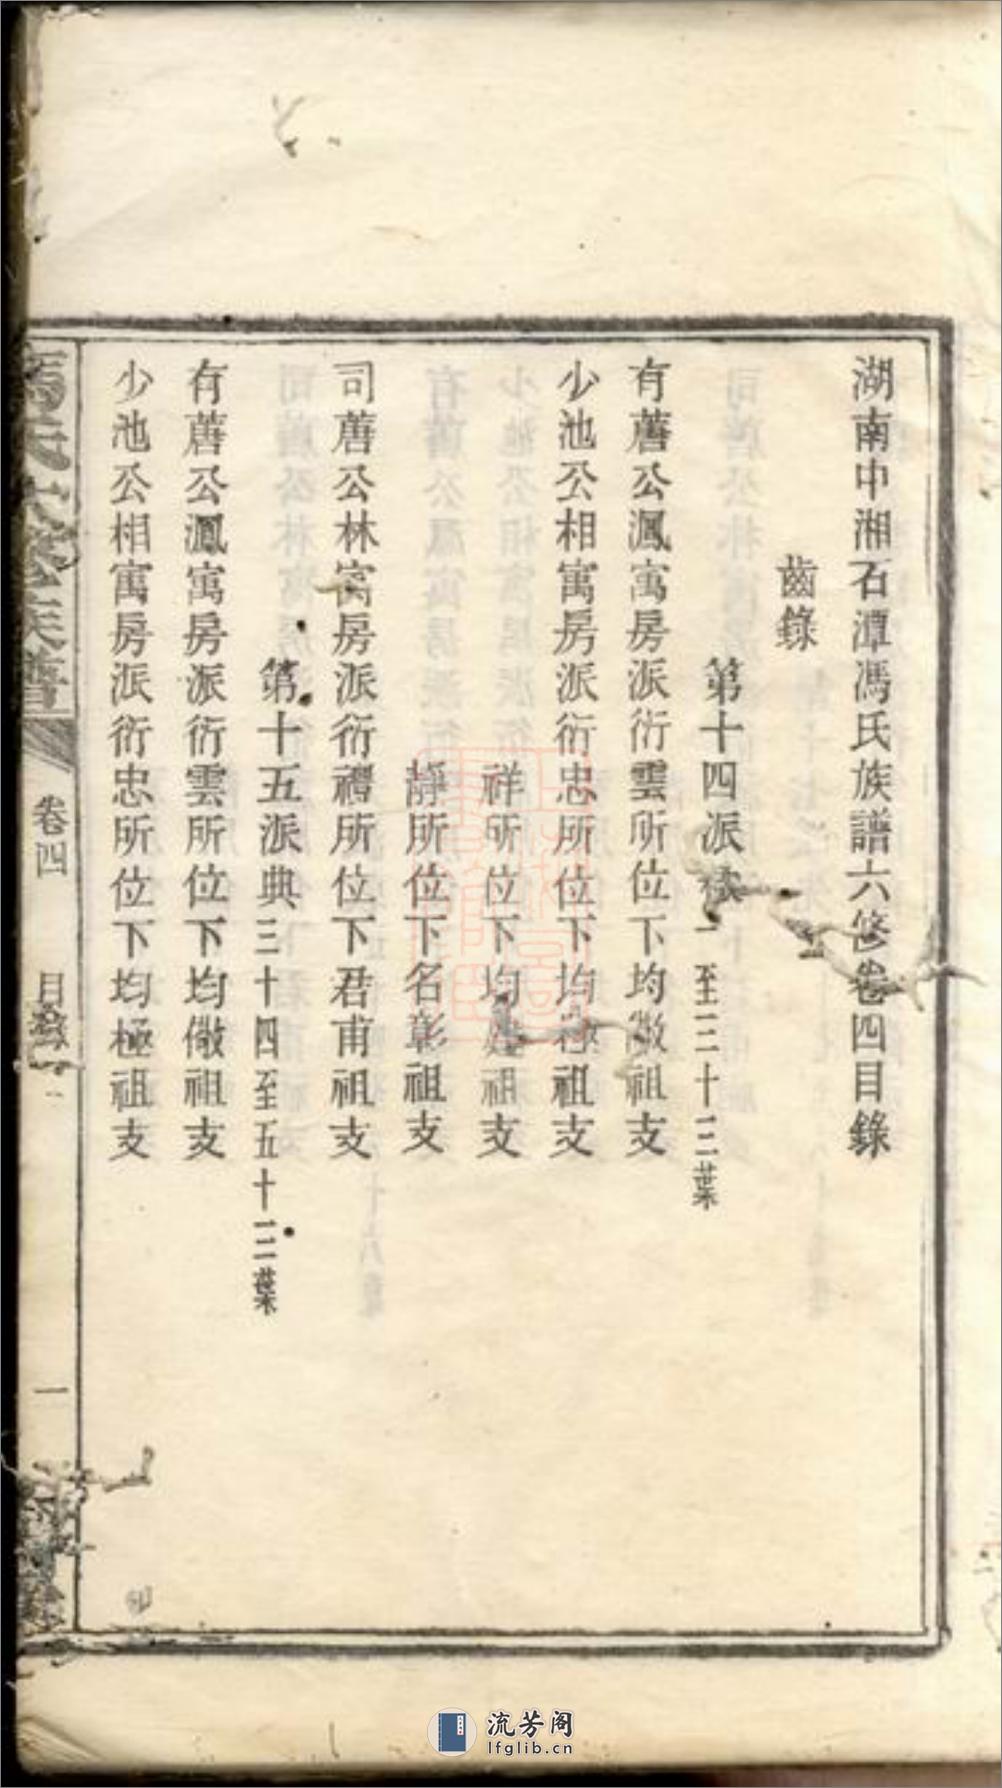 湖南中湘石潭馮氏族譜六修卷四目錄
齒錄
第十四派 一至三十三葉
有蓎公鳳寓房派衍雲所位下均儆祖支
少池公相寓房派衍忠所位下均極祖支
祥所位下均祖支
靜所位下名彰祖支
司蓎公林寓房派衍禮所位下君甫祖支
第十五派典三十四至五十三葉
有蓎公鳳寓房派衍雲所位下均儆祖支
少池公相寓房派衍忠所位下均極祖支
馮氏六修族譜
卷四
目錄
一
流芳阁
lfglib.cn